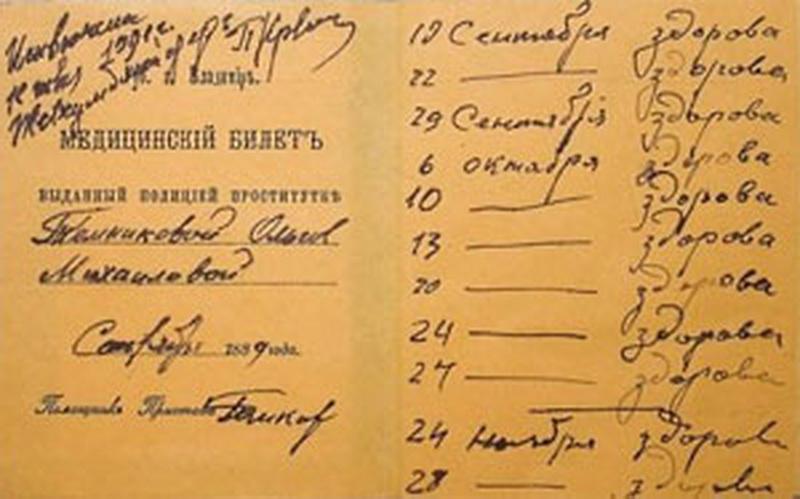 1891 г.
г. Владиміръ.
МЕДИЦИНСКІЙ БИЛЕТЪ
ВЫДАННЫЙ ПОЛИЦІЕЙ ПРОСТИТУТКѢ
Темниковой Ольги
Михаиловой
1889 года.
Помощникъ Пристава
19 Сентября здорова
22 — здорова
29 Сентября здорова
6 октября здорова
10 — здорова
13 — здорова
20 — здорова
24 — здорова
27 — здорова
24 ноября здорова
28 — здорова